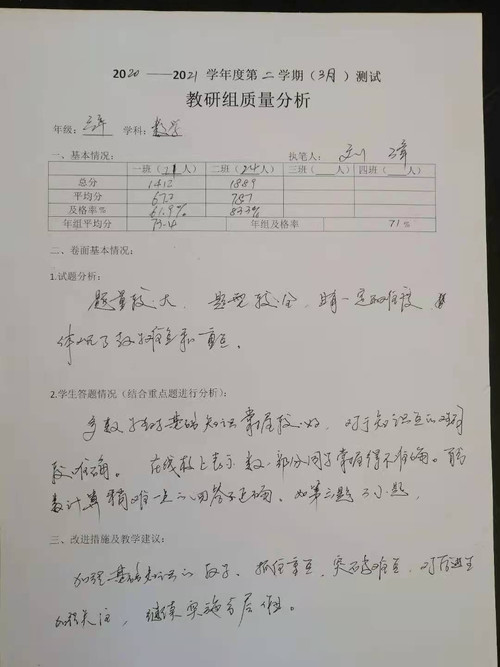 2020 —— 2021 学年度第 二 学期（3月）测试
教研组质量分析
年级： 学科：数学
一、基本情况： 执笔人：刘
一班（21人） 二班（24人） 三班（ 人） 四班（ 人）
总分 1412 1889
平均分 67.2 78.7
及格率% 61.9% 83.3%
年组平均分 73.4 年组及格率 71%
二、卷面基本情况：
1.试题分析：
题量较大，题型较全，有一定的难度，
体现了教材难点和重点。
2.学生答题情况（结合重点题进行分析）：
多数孩子基础知识掌握较好，对于知识点的
较准确。在线段上表示数一部分同学掌握得不准确。
数计算稍难一点的回答不正确。如第三题2小题。
三、改进措施及教学建议：
加强基础知识的教学、抓住重点、突破难点，对后进生
加强关注，继续实施分层作业。